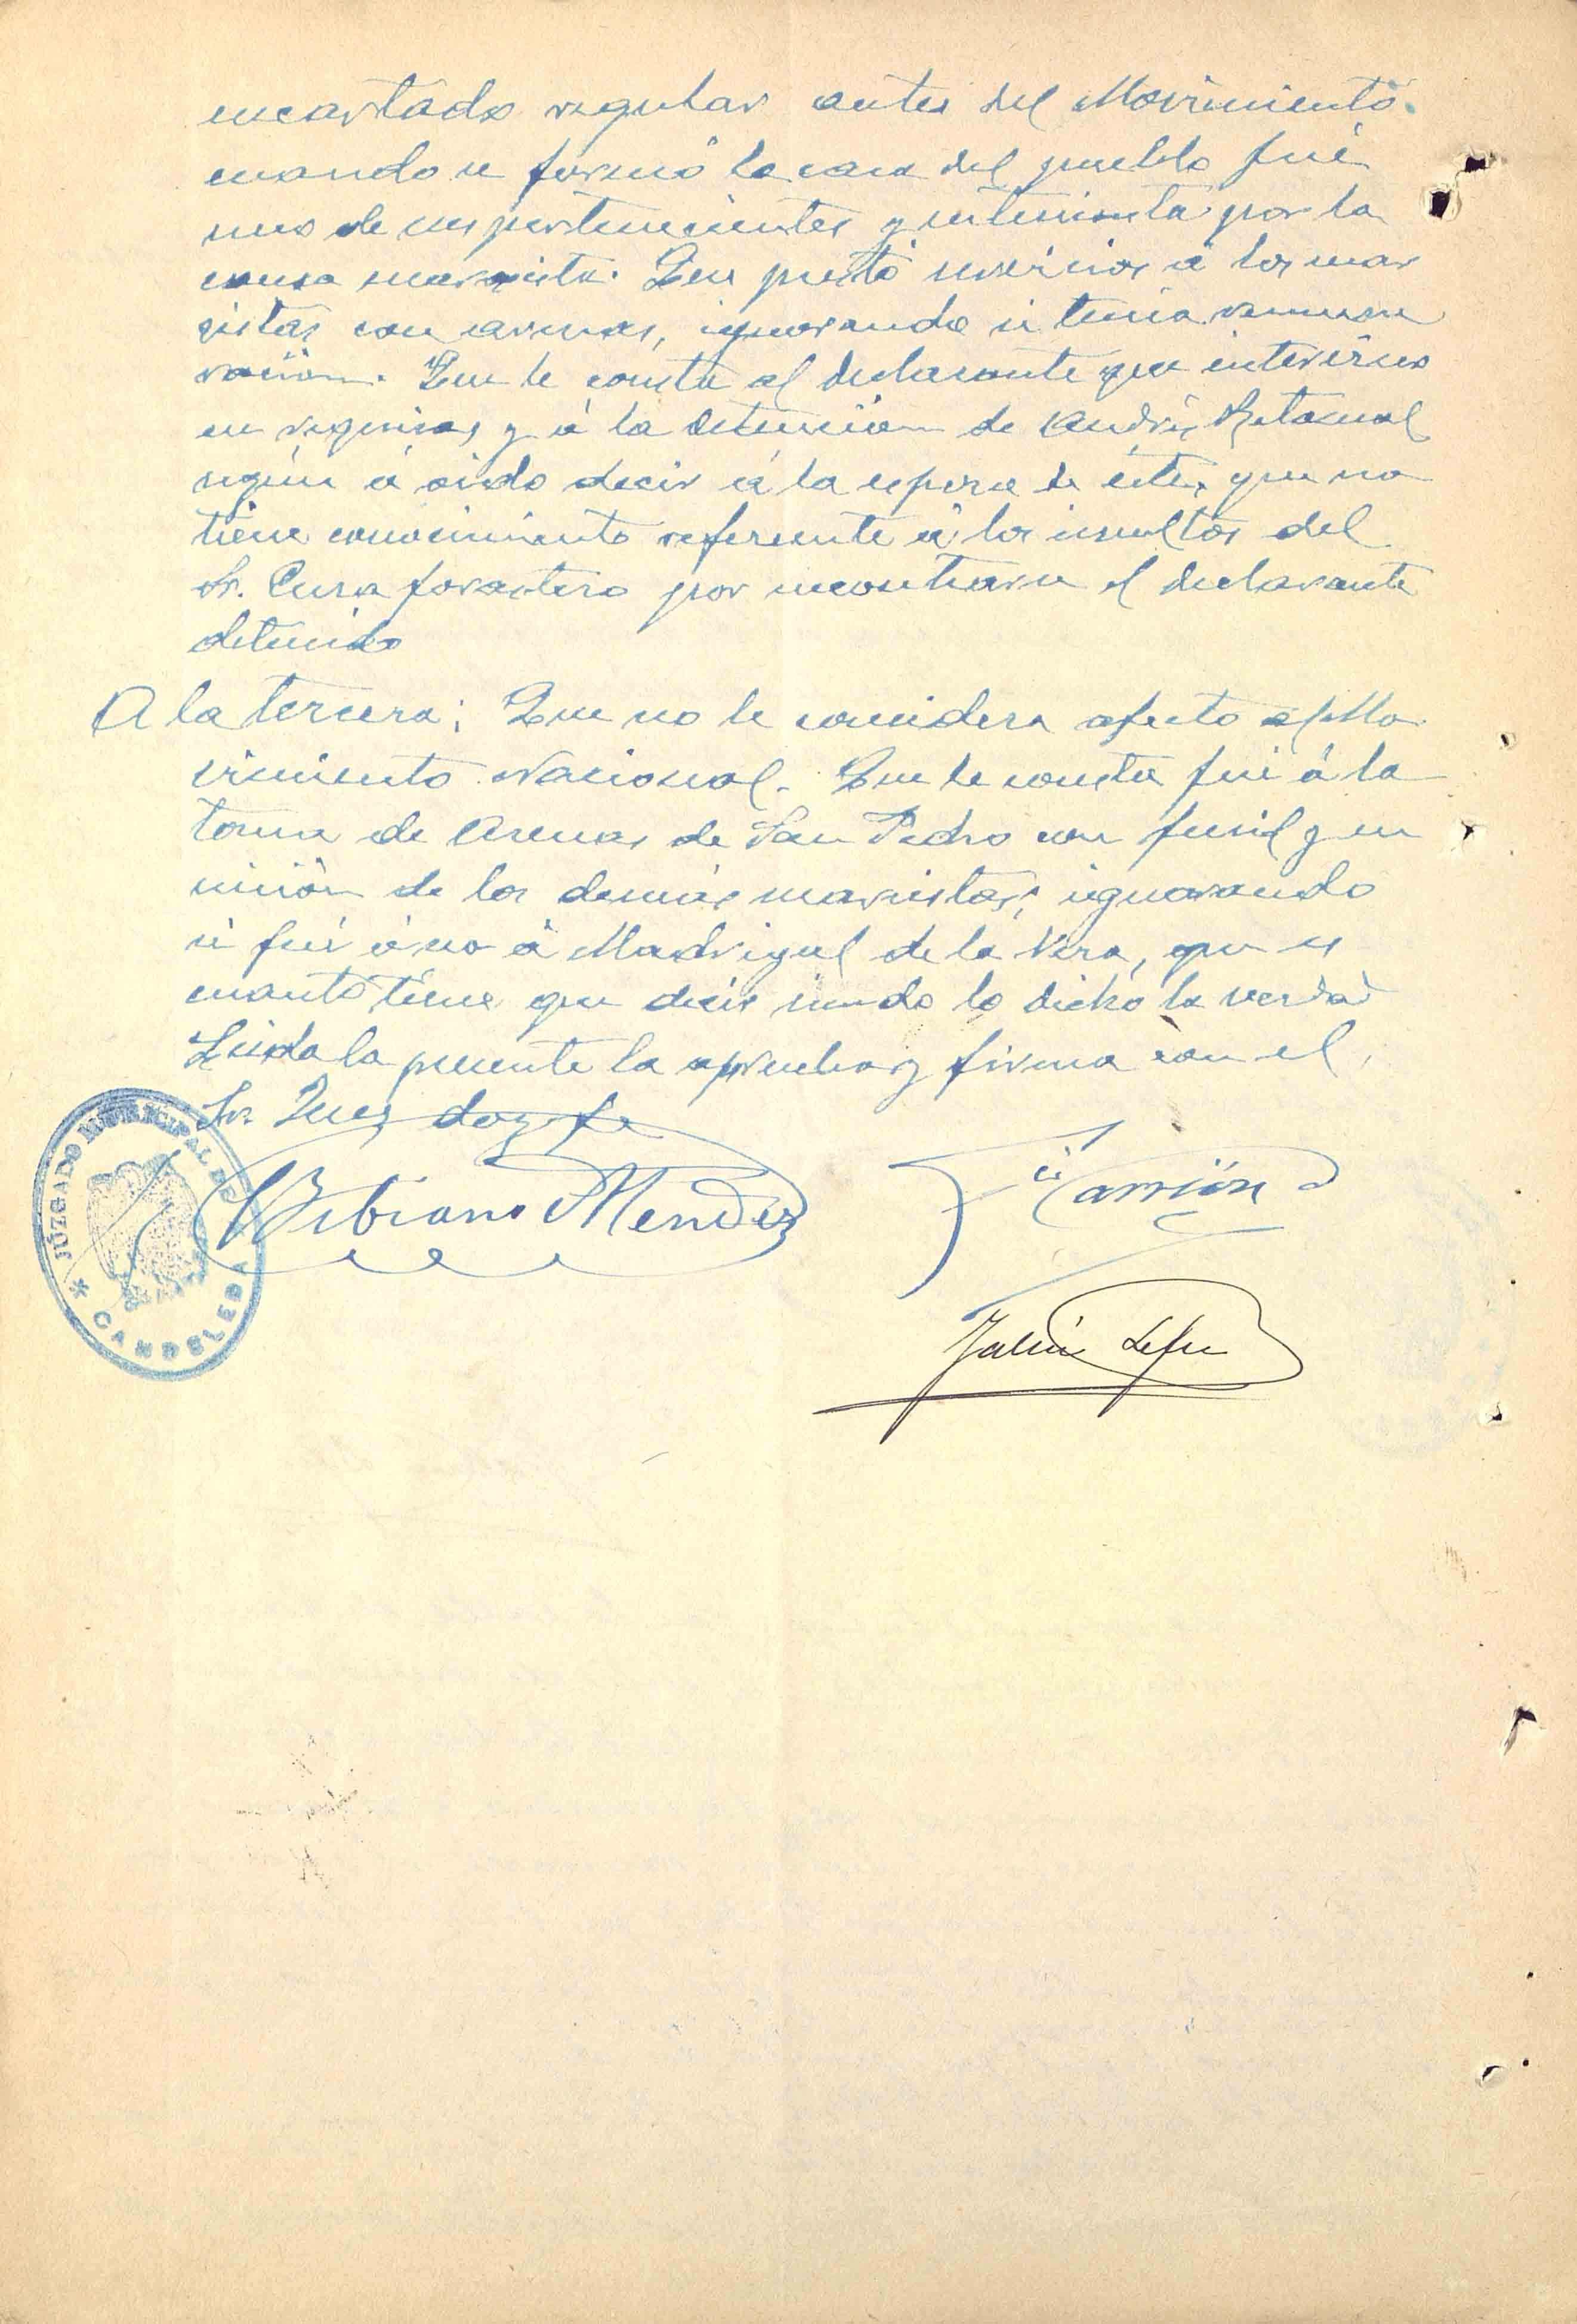 encartado regular antes del Movimiento.
cuando se formó la casa del pueblo fué
uno de sus pertenecientes y entusiasta por la
causa marxista. Que prestó servicios á los mar
xistas con armas, ignorando si tenia remune
ración. Que le consta al declarante que intervino
en requisas y á la detención de Andrés Retamal
según á oido decir á la esposa de éste, que no
tiene conocimiento referente á los insultos del
Sr. Cura forastero por encontrarse el declarante
detenido
A la tercera; Que no le considera afecto al Mo
vimiento Nacional. Que le consta fué á la
toma de Arenas de San Pedro con fusil y en
unión de los demás marxistas, ignorando
si fué ó no á Madrigal de la Vera, que es
cuanto tiene que decir siendo lo dicho la verdad
Leida la presente la aprueba y firma con el
Sr Juez doy fe
JUZGADO MUNICIPAL DE
CANDELEDA
Bibiano Mendez
Carrión
Julián